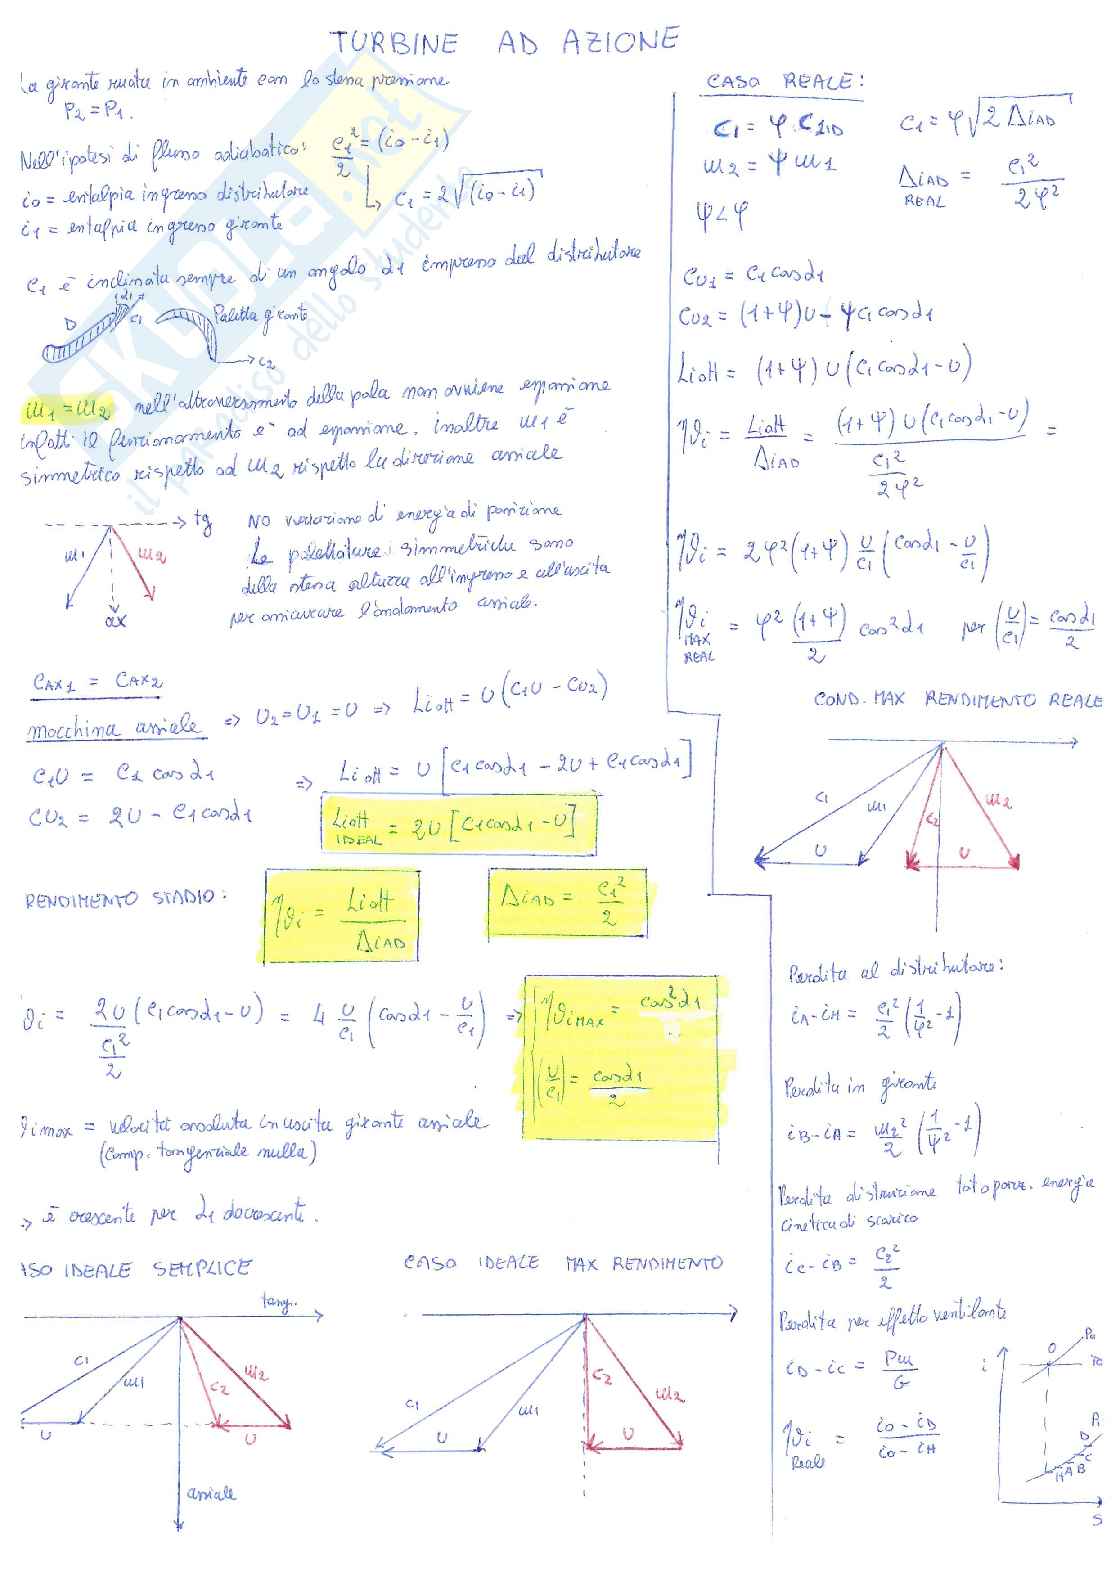 TURBINE AD AZIONE
La girante ruota in ambiente con la stessa pressione
P2 = P1.
Nell'ipotesi di flusso adiabatico: c1²/2 = (i0 - i1)
↳ c1 = 2√(i0 - i1)
i0 = entalpia ingresso distributore
i1 = entalpia ingresso girante
C1 è inclinata sempre di un angolo α1 impresso dal distributore
D α1 C1 Paletta girante
C2
w1 = w2 nell'attraversamento della pala non avviene espansione
infatti il funzionamento è ad espansione. inoltre w1 è
simmetrico rispetto ad w2 rispetto la direzione assiale
tg
w1 w2
ax
NO variazione di energia di posizione
Le palettature simmetriche sono
della stessa altezza all'ingresso e all'uscita
per assicurare l'andamento assiale.
CAX1 = CAX2
macchina assiale => U2 = U1 = U => Liatt = U (C1U - CU2)
C1U = C1 cosα1
=> Liatt = U [C1cosα1 - 2U + C1cosα1]
CU2 = 2U - C1cosα1
Liatt IDEAL = 2U [C1cosα1 - U]
RENDIMENTO STADIO:
ηθi = Liatt/ΔiAD
ΔiAD = C1²/2
θi = 2U (C1cosα1 - U) / (C1²/2) = 4 U/C1 (cosα1 - U/C1) => ηθiMAX = cos²α1
(U/C1) = cosα1/2
ηimax = velocità assoluta in uscita girante assiale
(comp. tangenziale nulla)
=> è crescente per α1 decrescente.
ISO IDEALE SEMPLICE
tang.
C1 w1 C2 w2
U U
assiale
CASO IDEALE MAX RENDIMENTO
C1 w1 C2 w2
U U
CASO REALE:
C1 = φ·C1ID
C1 = φ√2 ΔiAD
w2 = ψ w1
ΔiAD REAL = C1²/2φ²
ψ < φ
CU1 = C1cosα1
CU2 = (1+ψ)U - ψC1cosα1
Liatt = (1+ψ) U (C1cosα1 - U)
ηθi = Liatt/ΔiAD = (1+ψ) U (C1cosα1 - U) / (C1²/2φ²) =
ηθi = 2φ²(1+ψ) U/C1 (cosα1 - U/C1)
ηθi MAX REAL = φ² (1+ψ)/2 cos²α1 per (U/C1) = cosα1/2
COND. MAX RENDIMENTO REALE
C1 w1 C2 w2
U U
Perdita al distributore:
iA - iH = C1²/2 (1/φ² - 1)
Perdita in girante
iB - iA = w2²/2 (1/ψ² - 1)
Perdita distruzione tot o parz. energia
cinetica di scarico
iC - iB = C2²/2
Perdita per effetto ventilante
iD - iC = Pw/G
ηθi Reale = (i0 - iD)/(i0 - iH)
i
O
P1
D
C
H A B
S
SKUOLA.net
il paradiso dello studente